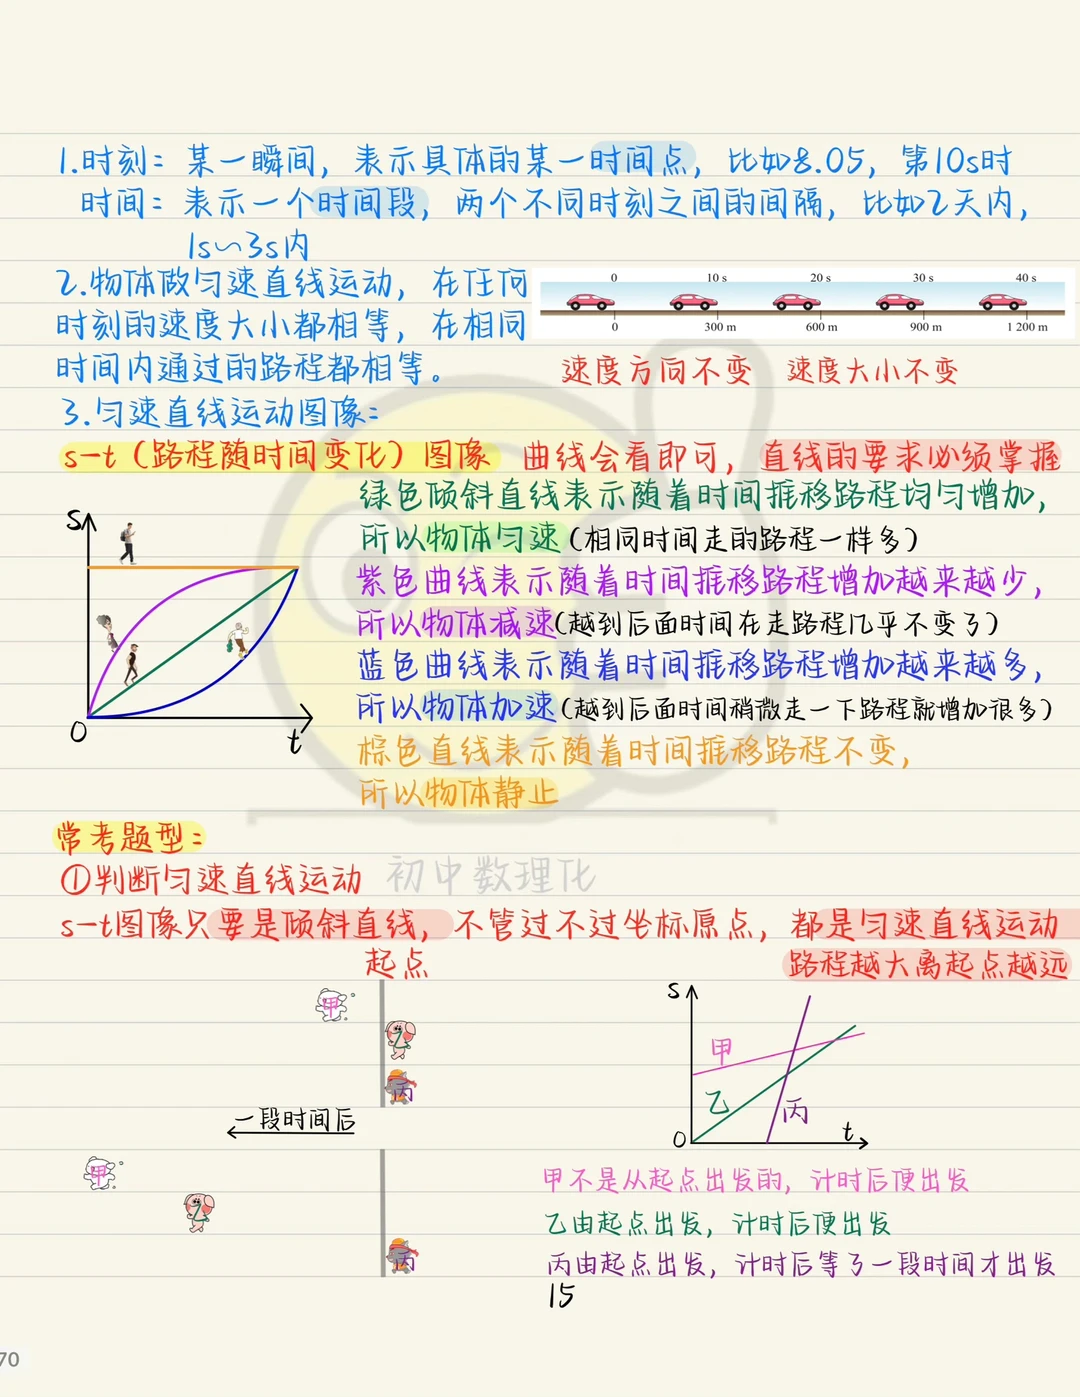 1.时刻：某一瞬间，表示具体的某一时间点，比如8.05，第10s时
时间：表示一个时间段，两个不同时刻之间的间隔，比如2天内，
1s~3s内
2.物体做匀速直线运动，在任何
时刻的速度大小都相等，在相同
时间内通过的路程都相等。
0 10 s 20 s 30 s 40 s
0 300 m 600 m 900 m 1 200 m
速度方向不变 速度大小不变
3.匀速直线运动图像：
s-t（路程随时间变化）图像 曲线会看即可，直线的要求必须掌握
绿色倾斜直线表示随着时间推移路程均匀增加，
所以物体匀速（相同时间走的路程一样多）
紫色曲线表示随着时间推移路程增加越来越少，
所以物体减速（越到后面时间在走路程几乎不变了）
蓝色曲线表示随着时间推移路程增加越来越多，
所以物体加速（越到后面时间稍微走一下路程就增加很多）
棕色直线表示随着时间推移路程不变，
所以物体静止
S
O
t
常考题型：
①判断匀速直线运动
初中数理化
s-t图像只要是倾斜直线，不管过不过坐标原点，都是匀速直线运动
路程越大离起点越远
起点
甲
乙
丙
一段时间后
甲
乙
丙
S
甲
乙
丙
O
t
甲不是从起点出发的，计时后便出发
乙由起点出发，计时后便出发
丙由起点出发，计时后等了一段时间才出发
15
70